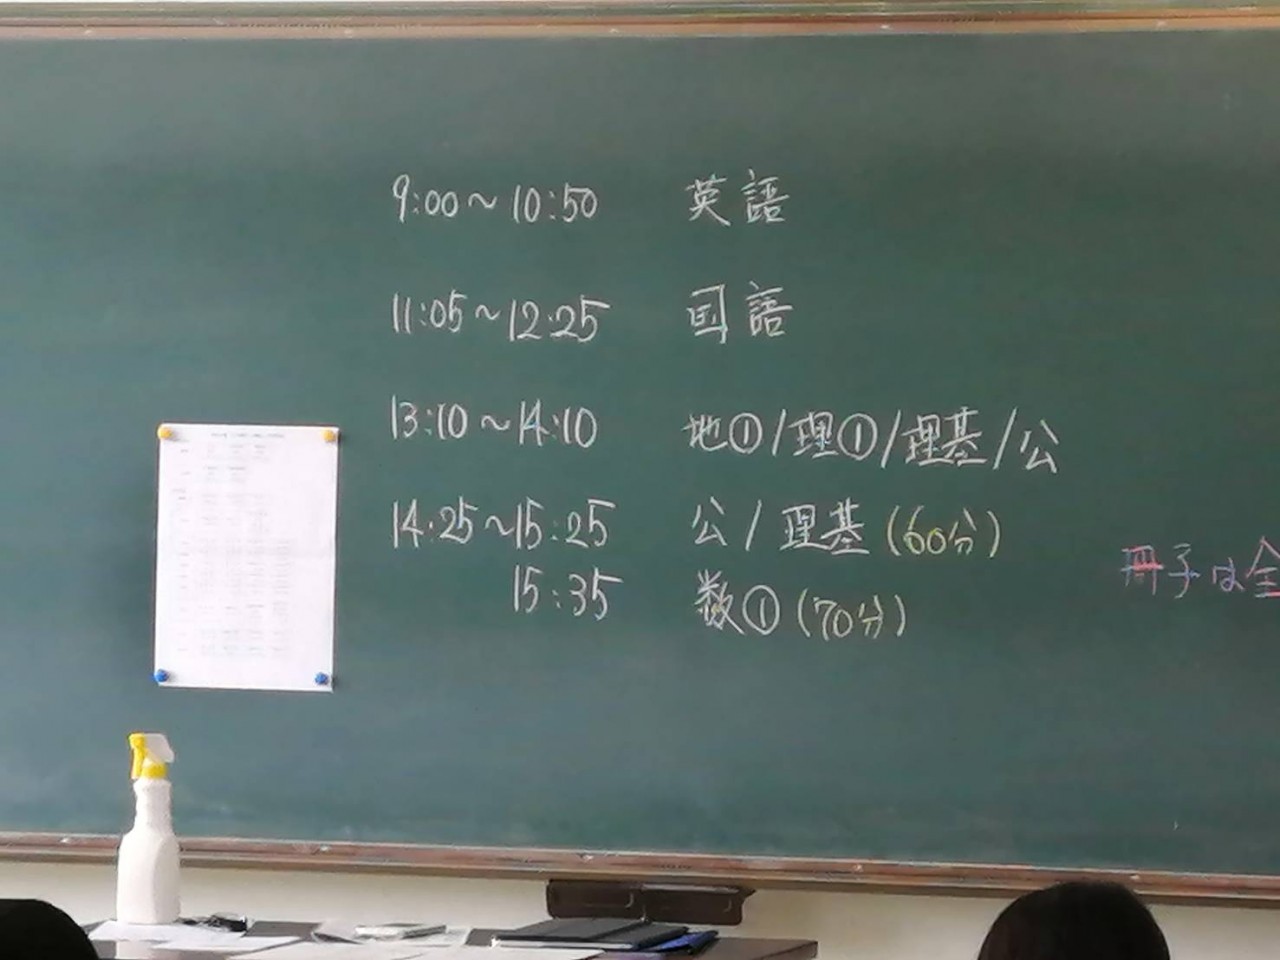 9:00～10:50 英語
11:05～12:25 国語
13:10～14:10 地①/理①/理基/公
14:25～15:25 公/理基(60分)
15:35 数①(70分)
冊子は全